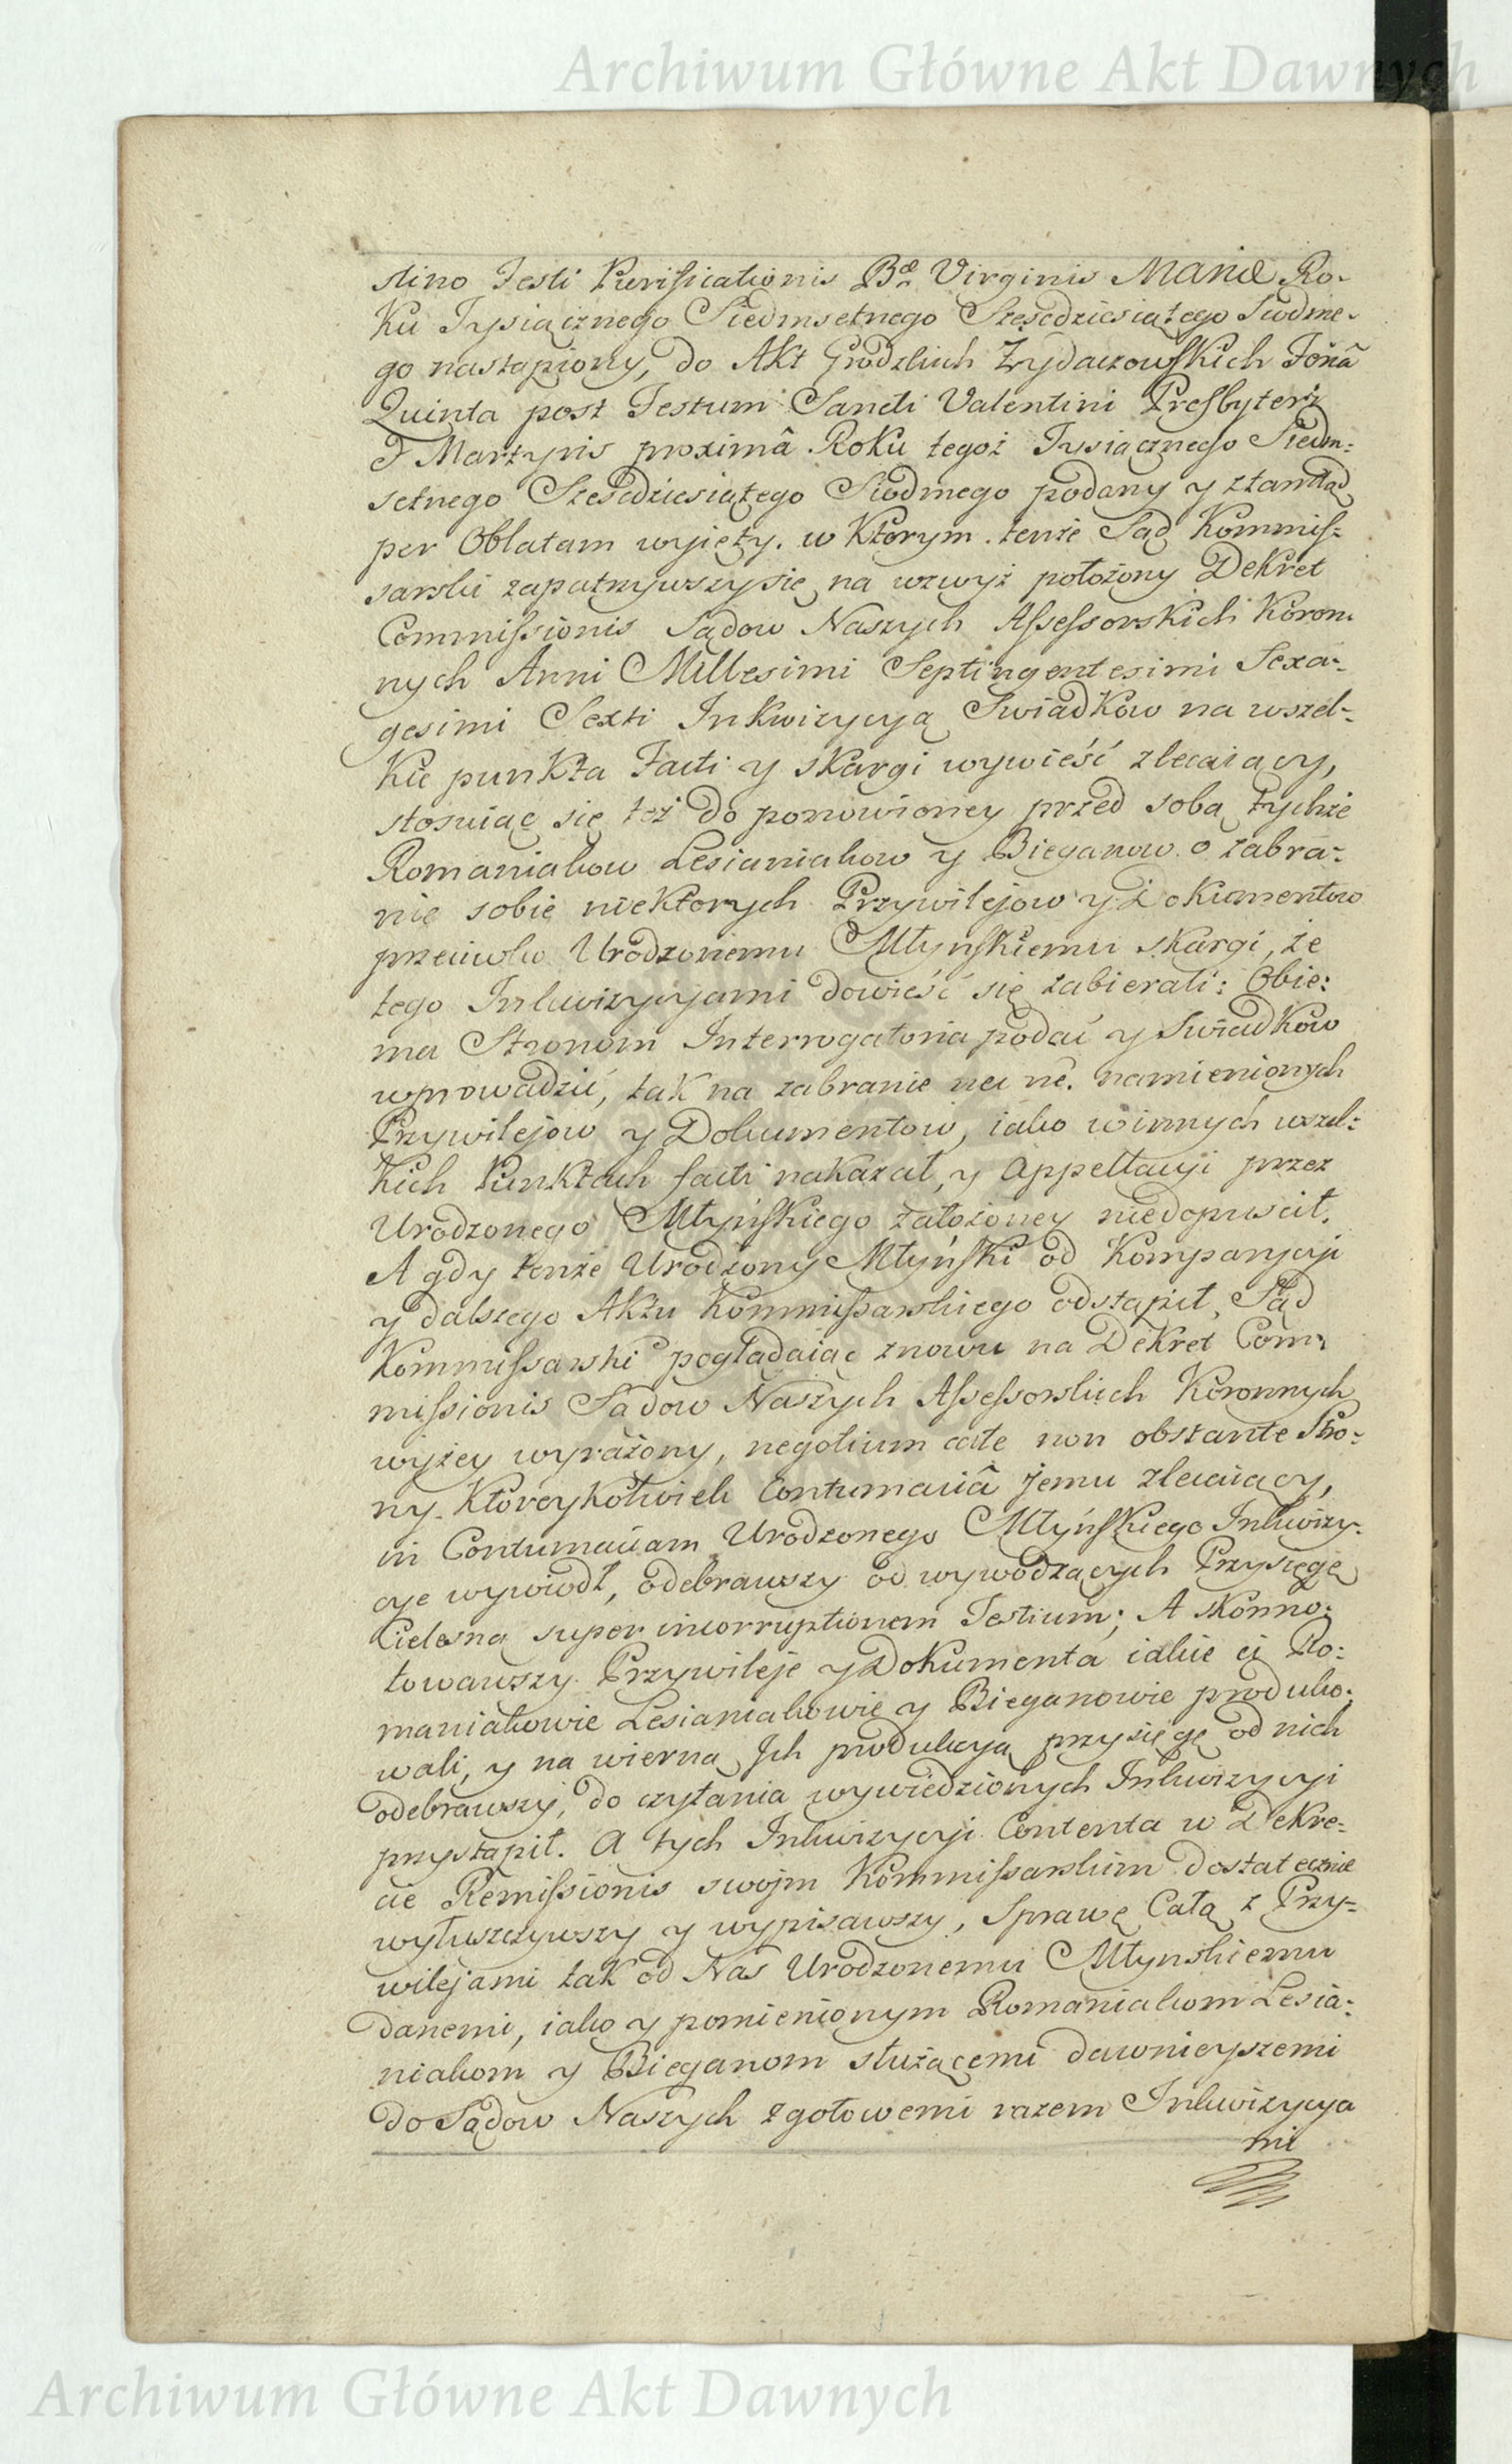 Archiwum Główne Akt Dawnych
stino Festi Purificationis Bæ Virginis Mariæ Ro-
ku Tysiącznego Siedmsetnego Szescdziesiątego Siodme-
go nastąpiony, do Akt Grodzkich Żydaczowskich Feriâ
Quinta post Festum Sancti Valentini Presbyteri
& Martyris proximâ Roku tegoż Tysiącznego Siedm:
setnego Szescdziesiątego Siodmego podany y ztamtąd
per Oblatam wyięty. w ktorym tenże Sąd Kommis:
sarski zapatrzywszy się na wzwyż położony Dekret
Commissionis Sądow Naszych Assessorskich Koron:
nych Anni Millesimi Septingentesimi Sexa:
gesimi Sexti Inkwizycyą Swiadkow na wszel:
kie punkta Facti y skargi wywieść zlecaiący,
stosuiąc się też do ponowioney przed sobą tychże
Romaniakow Lesianiakow y Bieganow o zabra:
nie sobie niektorych Przywilejow y Dokumentow
przeciwko Urodzonemu Młynskiemu skargi, że
tego Inkwizycyjami dowieść się zabierali: Obie:
ma Stronom Interrogatoria podać y Swiadkow
wprowadzić, tak na zabranie namienionych
Przywilejow y Dokumentow, iako w innych wszel:
kich Punktach facti nakazał, y Appellacyi przez
Urodzonego Młyńskiego założoney niedopuscił.
A gdy tenże Urodzony Młyński od Kompanycyi
y dalszego Aktu Kommissarskiego odstąpił, Sąd
Kommissarski poglądaiąc znowu na Dekret Com:
missionis Sądow Naszych Assessorskich Koronnych
wyżey wyrażony, negotium całe non obstante Stro:
ny ktoreykolwiek Contumaciâ jemu zlecaiący,
in Contumaciam Urodzonego Młyńskiego Inkwizy:
cye wywiodł, odebrawszy od wywodzących Przysięgę
Cielesną super incorruptionem Testium; A skonno:
towawszy Przywileje y Dokumenta iakie ci Ro:
maniakowie Lesianiakowie y Bieganowie produko:
wali, y na wierną Jch produkcyą przysięgę od nich
odebrawszy, do czytania wywiedzionych Inkwizycyi
przystąpił. A tych Inkwizycyi Contenta w Dekre:
cie Remissionis swojm Kommissarskim dostatecznie
wytłuszczywszy y wypisawszy, Sprawę Całą z Przy:
wilejami tak od Nas Urodzonemu Młynskiemu
danemi, iako y pomienionym Romaniakom Lesia:
niakom y Bieganom służącemi dawnieyszemi
do Sądow Naszych z gotowemi razem Inkwizycya
mi
Archiwum Główne Akt Dawnych